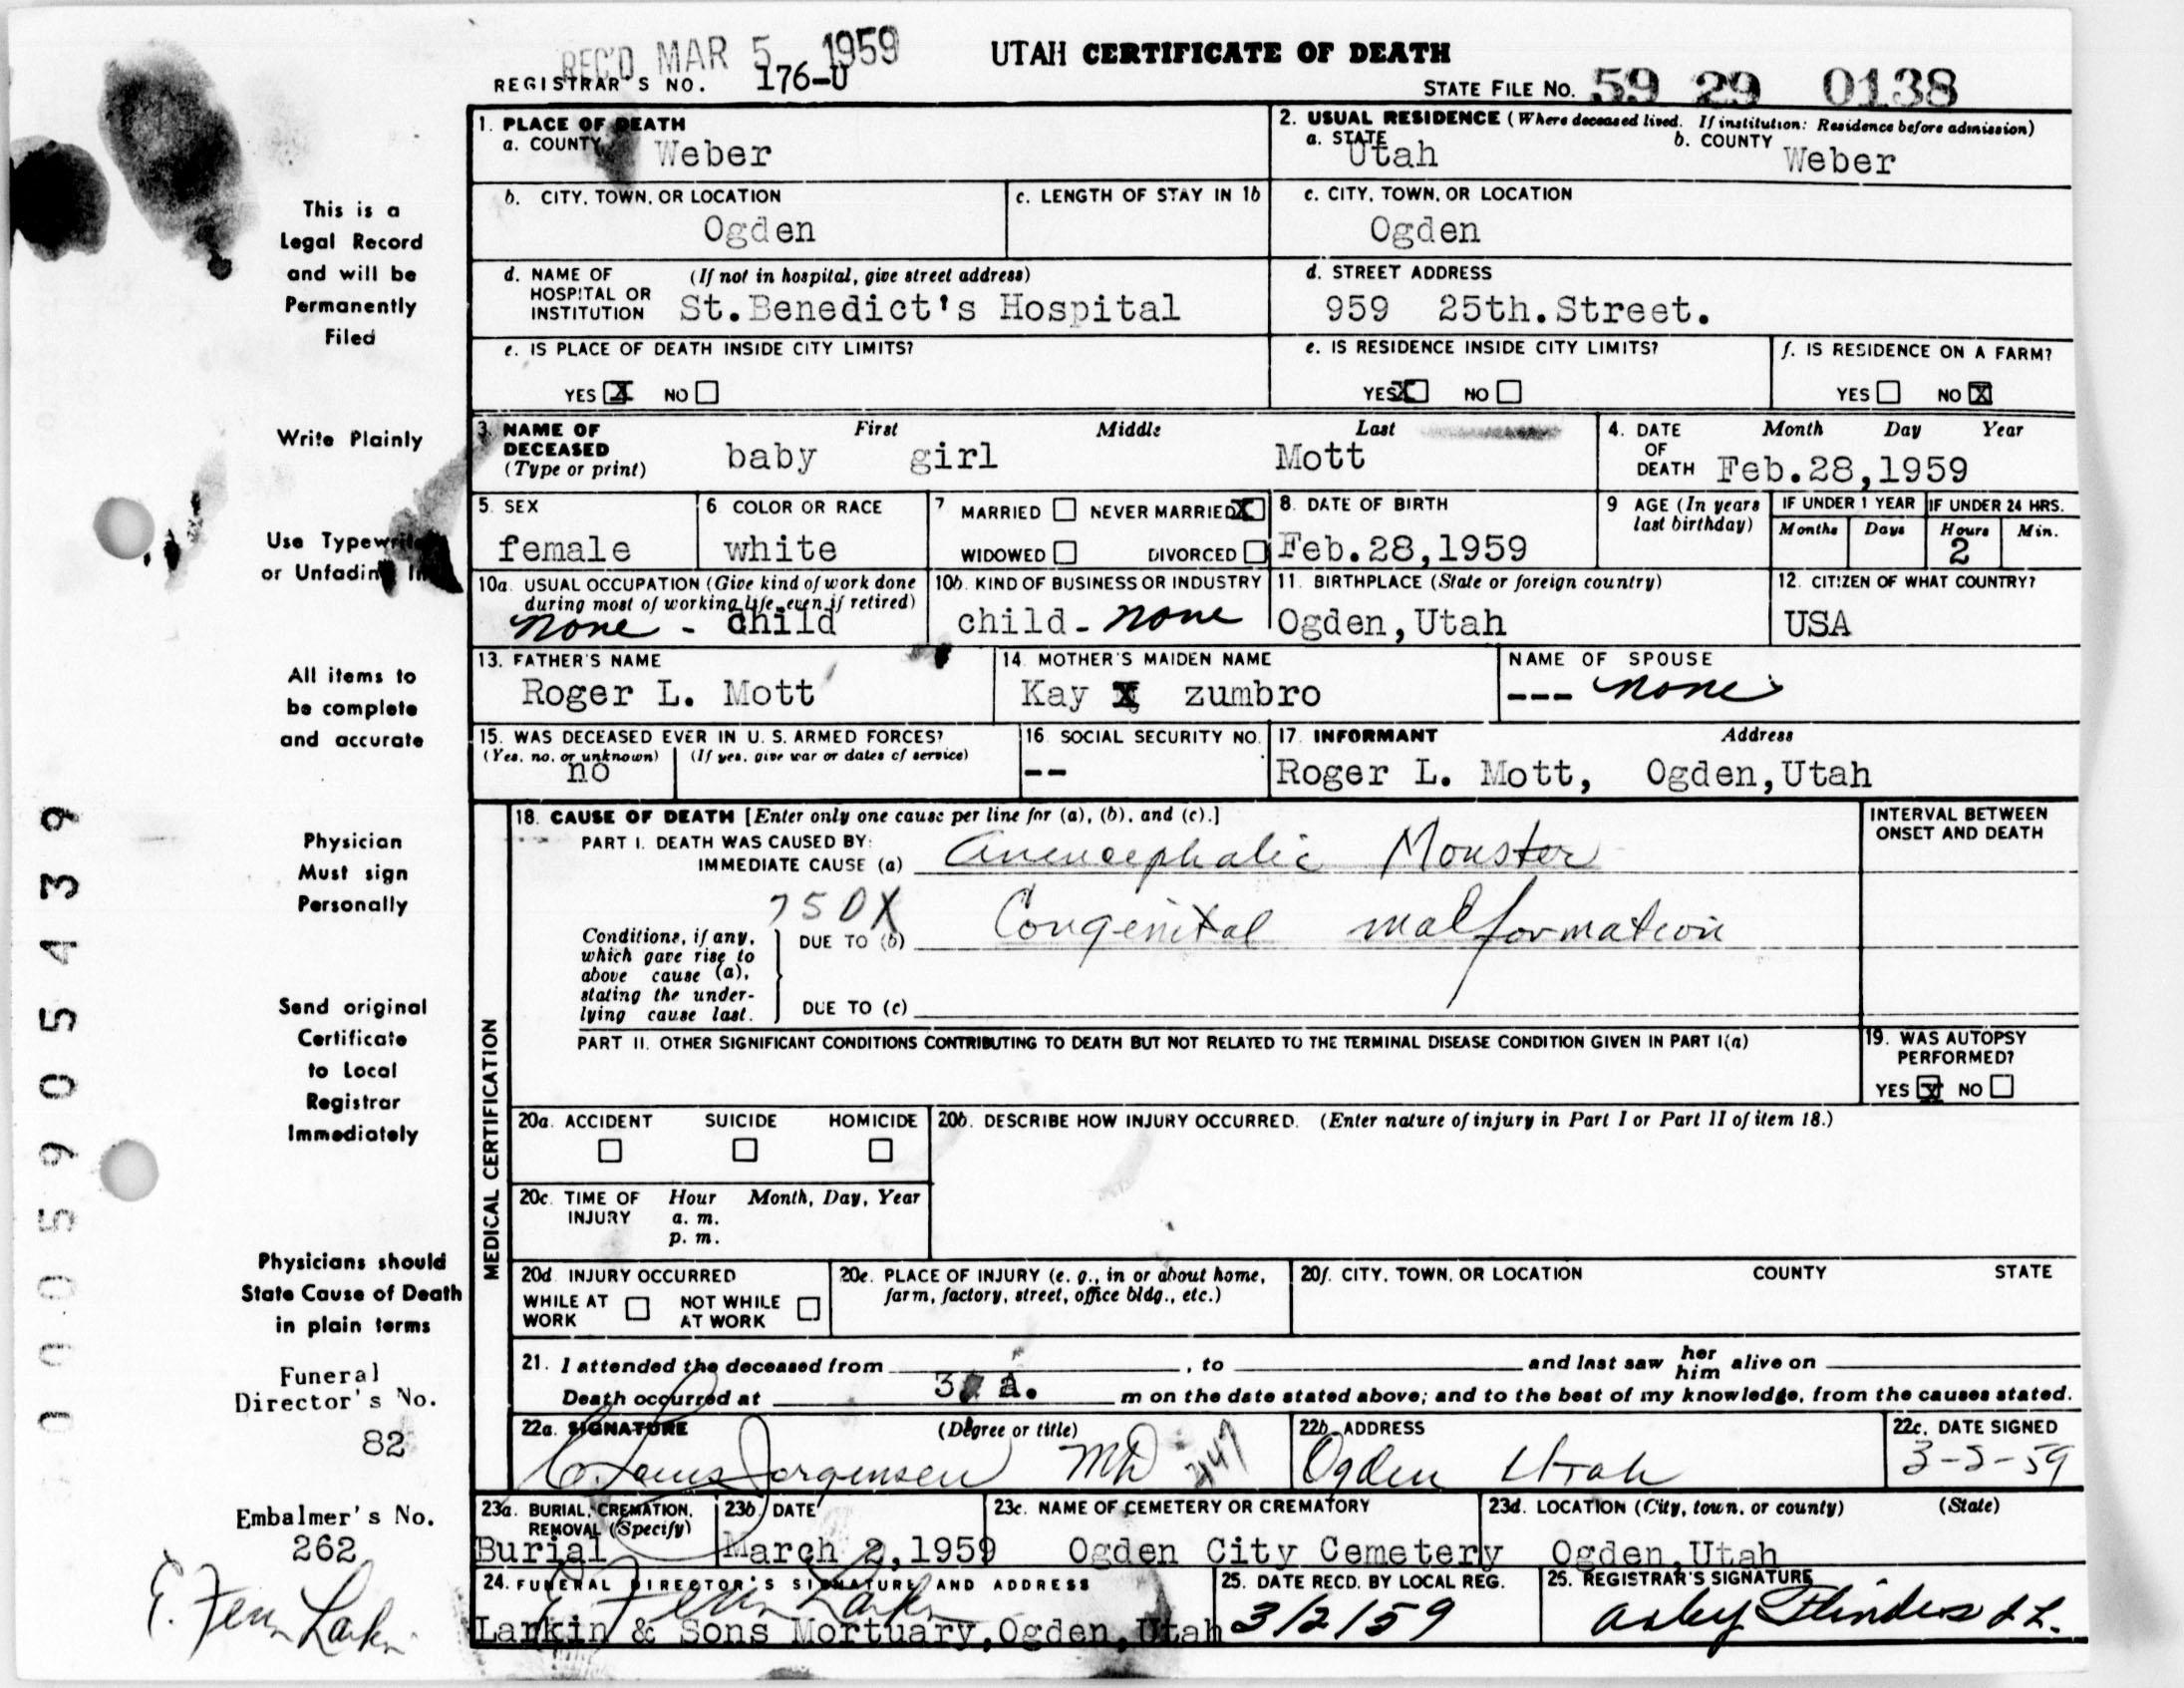 REC'D MAR 5 1959
UTAH CERTIFICATE OF DEATH
REGISTRAR'S NO. 176-U
STATE FILE NO. 59 29 0138
1. PLACE OF DEATH
a. COUNTY Weber
2. USUAL RESIDENCE (Where deceased lived. If institution: Residence before admission)
a. STATE Utah b. COUNTY Weber
b. CITY, TOWN, OR LOCATION Ogden
c. LENGTH OF STAY IN 1b
c. CITY, TOWN, OR LOCATION Ogden
d. NAME OF HOSPITAL OR INSTITUTION (If not in hospital, give street address) St.Benedict's Hospital
d. STREET ADDRESS 959 25th.Street.
e. IS PLACE OF DEATH INSIDE CITY LIMITS?
YES X NO
e. IS RESIDENCE INSIDE CITY LIMITS?
YES X NO
f. IS RESIDENCE ON A FARM?
YES NO X
3. NAME OF DECEASED (Type or print) First Middle Last
baby girl Mott
4. DATE OF DEATH Month Day Year
Feb.28,1959
5. SEX female
6 COLOR OR RACE white
7 MARRIED NEVER MARRIED X
WIDOWED DIVORCED
8. DATE OF BIRTH Feb.28,1959
9 AGE (In years last birthday)
IF UNDER 1 YEAR Months Days
IF UNDER 24 HRS. Hours Min.
2
10a. USUAL OCCUPATION (Give kind of work done during most of working life, even if retired)
none - child
10b. KIND OF BUSINESS OR INDUSTRY
child - none
11. BIRTHPLACE (State or foreign country)
Ogden,Utah
12. CITIZEN OF WHAT COUNTRY?
USA
13. FATHER'S NAME
Roger L. Mott
14. MOTHER'S MAIDEN NAME
Kay zumbro
NAME OF SPOUSE
--- none
15. WAS DECEASED EVER IN U. S. ARMED FORCES?
(Yes, no, or unknown) (If yes, give war or dates of service)
no
16. SOCIAL SECURITY NO.
--
17. INFORMANT Address
Roger L. Mott, Ogden,Utah
MEDICAL CERTIFICATION
18. CAUSE OF DEATH [Enter only one cause per line for (a), (b), and (c).]
INTERVAL BETWEEN ONSET AND DEATH
PART I. DEATH WAS CAUSED BY:
IMMEDIATE CAUSE (a) Anencephalic Monster
750X
Conditions, if any, which gave rise to above cause (a), stating the underlying cause last.
DUE TO (b) Congenital malformation
DUE TO (c)
PART II. OTHER SIGNIFICANT CONDITIONS CONTRIBUTING TO DEATH BUT NOT RELATED TO THE TERMINAL DISEASE CONDITION GIVEN IN PART I(a)
19. WAS AUTOPSY PERFORMED?
YES X NO
20a. ACCIDENT SUICIDE HOMICIDE
20b. DESCRIBE HOW INJURY OCCURRED. (Enter nature of injury in Part I or Part II of item 18.)
20c. TIME OF INJURY Hour Month, Day, Year
a. m.
p. m.
20d. INJURY OCCURRED
WHILE AT WORK NOT WHILE AT WORK
20e. PLACE OF INJURY (e. g., in or about home, farm, factory, street, office bldg., etc.)
20f. CITY, TOWN, OR LOCATION COUNTY STATE
21. I attended the deceased from , to and last saw her him alive on
Death occurred at 3 a. m on the date stated above; and to the best of my knowledge, from the causes stated.
22a. SIGNATURE (Degree or title)
Jorgensen MD 247
22b. ADDRESS
Ogden Utah
22c. DATE SIGNED
3-5-59
23a. BURIAL, CREMATION, REMOVAL (Specify)
Burial
23b. DATE
March 2,1959
23c. NAME OF CEMETERY OR CREMATORY
Ogden City Cemetery
23d. LOCATION (City, town, or county) (State)
Ogden,Utah
24. FUNERAL DIRECTOR'S SIGNATURE AND ADDRESS
Larkin & Sons Mortuary,Ogden,Utah
25. DATE RECD. BY LOCAL REG.
3/2/59
25. REGISTRAR'S SIGNATURE
This is a
Legal Record
and will be
Permanently
Filed
Write Plainly
Use Typewriter
or Unfading Ink
All items to
be complete
and accurate
Physician
Must sign
Personally
Send original
Certificate
to Local
Registrar
Immediately
Physicians should
State Cause of Death
in plain terms
Funeral
Director's No.
82
Embalmer's No.
262
E. Fern Larkin